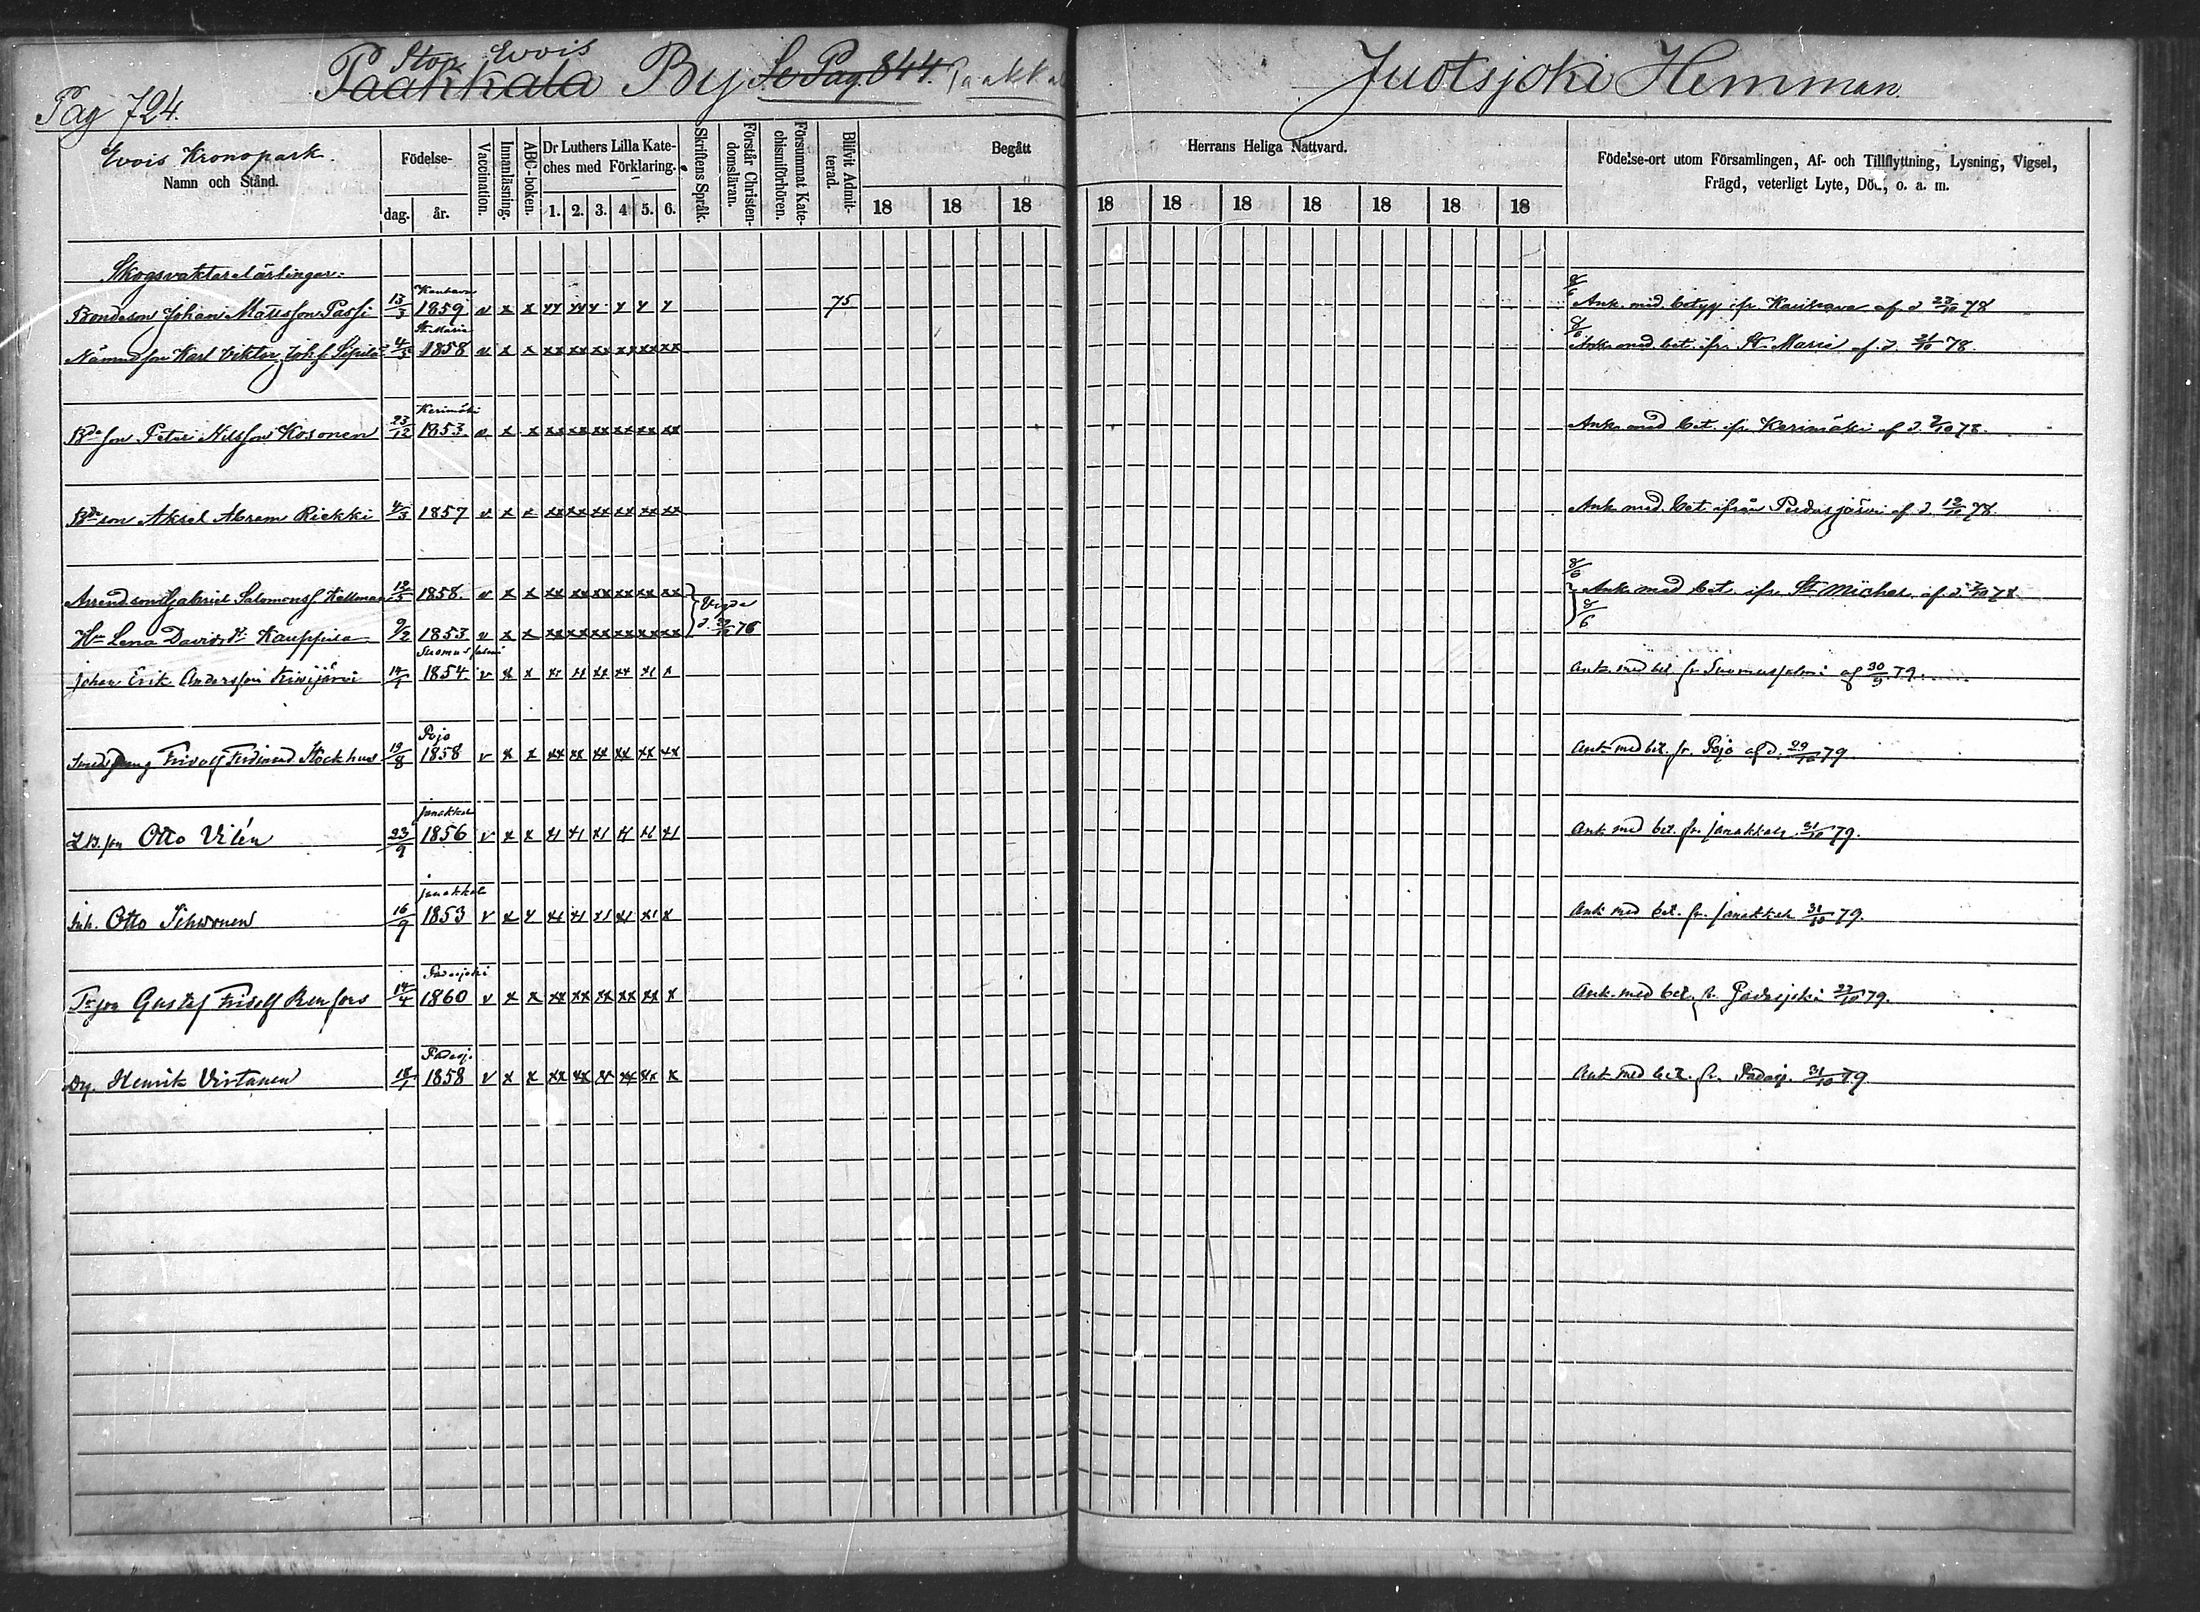 Pag 724.
Stor Evois
Paakkala By Se Pag. 844. Paakka
Juotsjoki Hemman.
Evois Kronopark.
Namn och Stånd.
Födelse-
dag. år.
Vaccination.
Innanläsning.
ABC-boken.
Dr Luthers Lilla Kate-
ches med Förklaring.
1. 2. 3. 4. 5. 6.
Skriftens Språk.
Förstår Christen-
domsläran.
Försummat Kate-
chismiförhören.
Blifvit Admit-
terad.
Begått
18 18 18
Herrans Heliga Nattvard.
18 18 18 18 18 18 18
Födelse-ort utom Församlingen, Af- och Tillflyttning, Lysning, Vigsel,
Frägd, veterligt Lyte, Död, o. a. m.
Skogsvaktarelärlingar:
Kauhava
Bondeson Johan Mattsson Passi 13/3 1859 v x x 75 8/6 Ank. med betyg fr. Kauhava af d. 23/10 78
St. Marie
Nämnd son Karl Viktor Joh. s. Sipilä 4/5 1858 v x x xx xx xx xx xx xx 8/6 Ank. med bet. ifr. St. Marie af d. 21/10 78.
Kerimäki
Bde son Peter Nilsson Kosonen 23/12 1853 v x x xx xx xx xx xx xx Ank. med bet. ifr. Kerimäki af d. 2/10 78.
Bde son Aksel Abram Riekki 4/3 1857 v x x xx xx xx xx xx xx Ank. med bet. ifrån Pudasjärvi af d. 12/10 78.
Arrend.son Gabriel Salomons s. Kellman 12/5 1858. v x x xx xx xx xx xx xx Vigde 8/6 Ank. med bet. ifr. St. Michel. af d. 2/10 78
Hu Lena Davids dr Kauppila 9/2 1853 v x x xx xx xx xx xx xx d. 29/10 76 8/6
Suomusjalmi
Johan Erik Andersson Kiwijärvi 14/9 1854 v x x Ank. med bet. fr. Suomusjalmi af 30/9 79.
Pojo
Fridolf Ferdinand Stockhus 19/8 1858 v x x xx xx xx xx xx xx Ank. med bet. fr. Pojo af d. 29/10 79.
Janakkala
Otto Vilén 23/9 1856 v x x Ank. med bet. fr. Janakkala 31/10 79.
Janakkala
Inh. Otto Sihvonen 16/9 1853 v x x Ank. med bet. fr. Janakkala 31/10 79.
Padasjoki
Gustaf Fridolf Renfors 14/4 1860 v x x xx xx xx xx xx x Ank. med bet. fr. Padasjoki 22/10 79.
Padasj.
Dg. Henrik Virtanen 18/1 1858 v x x xx xx x xx xx x Ank. med bet. fr. Padasj. 31/10 79